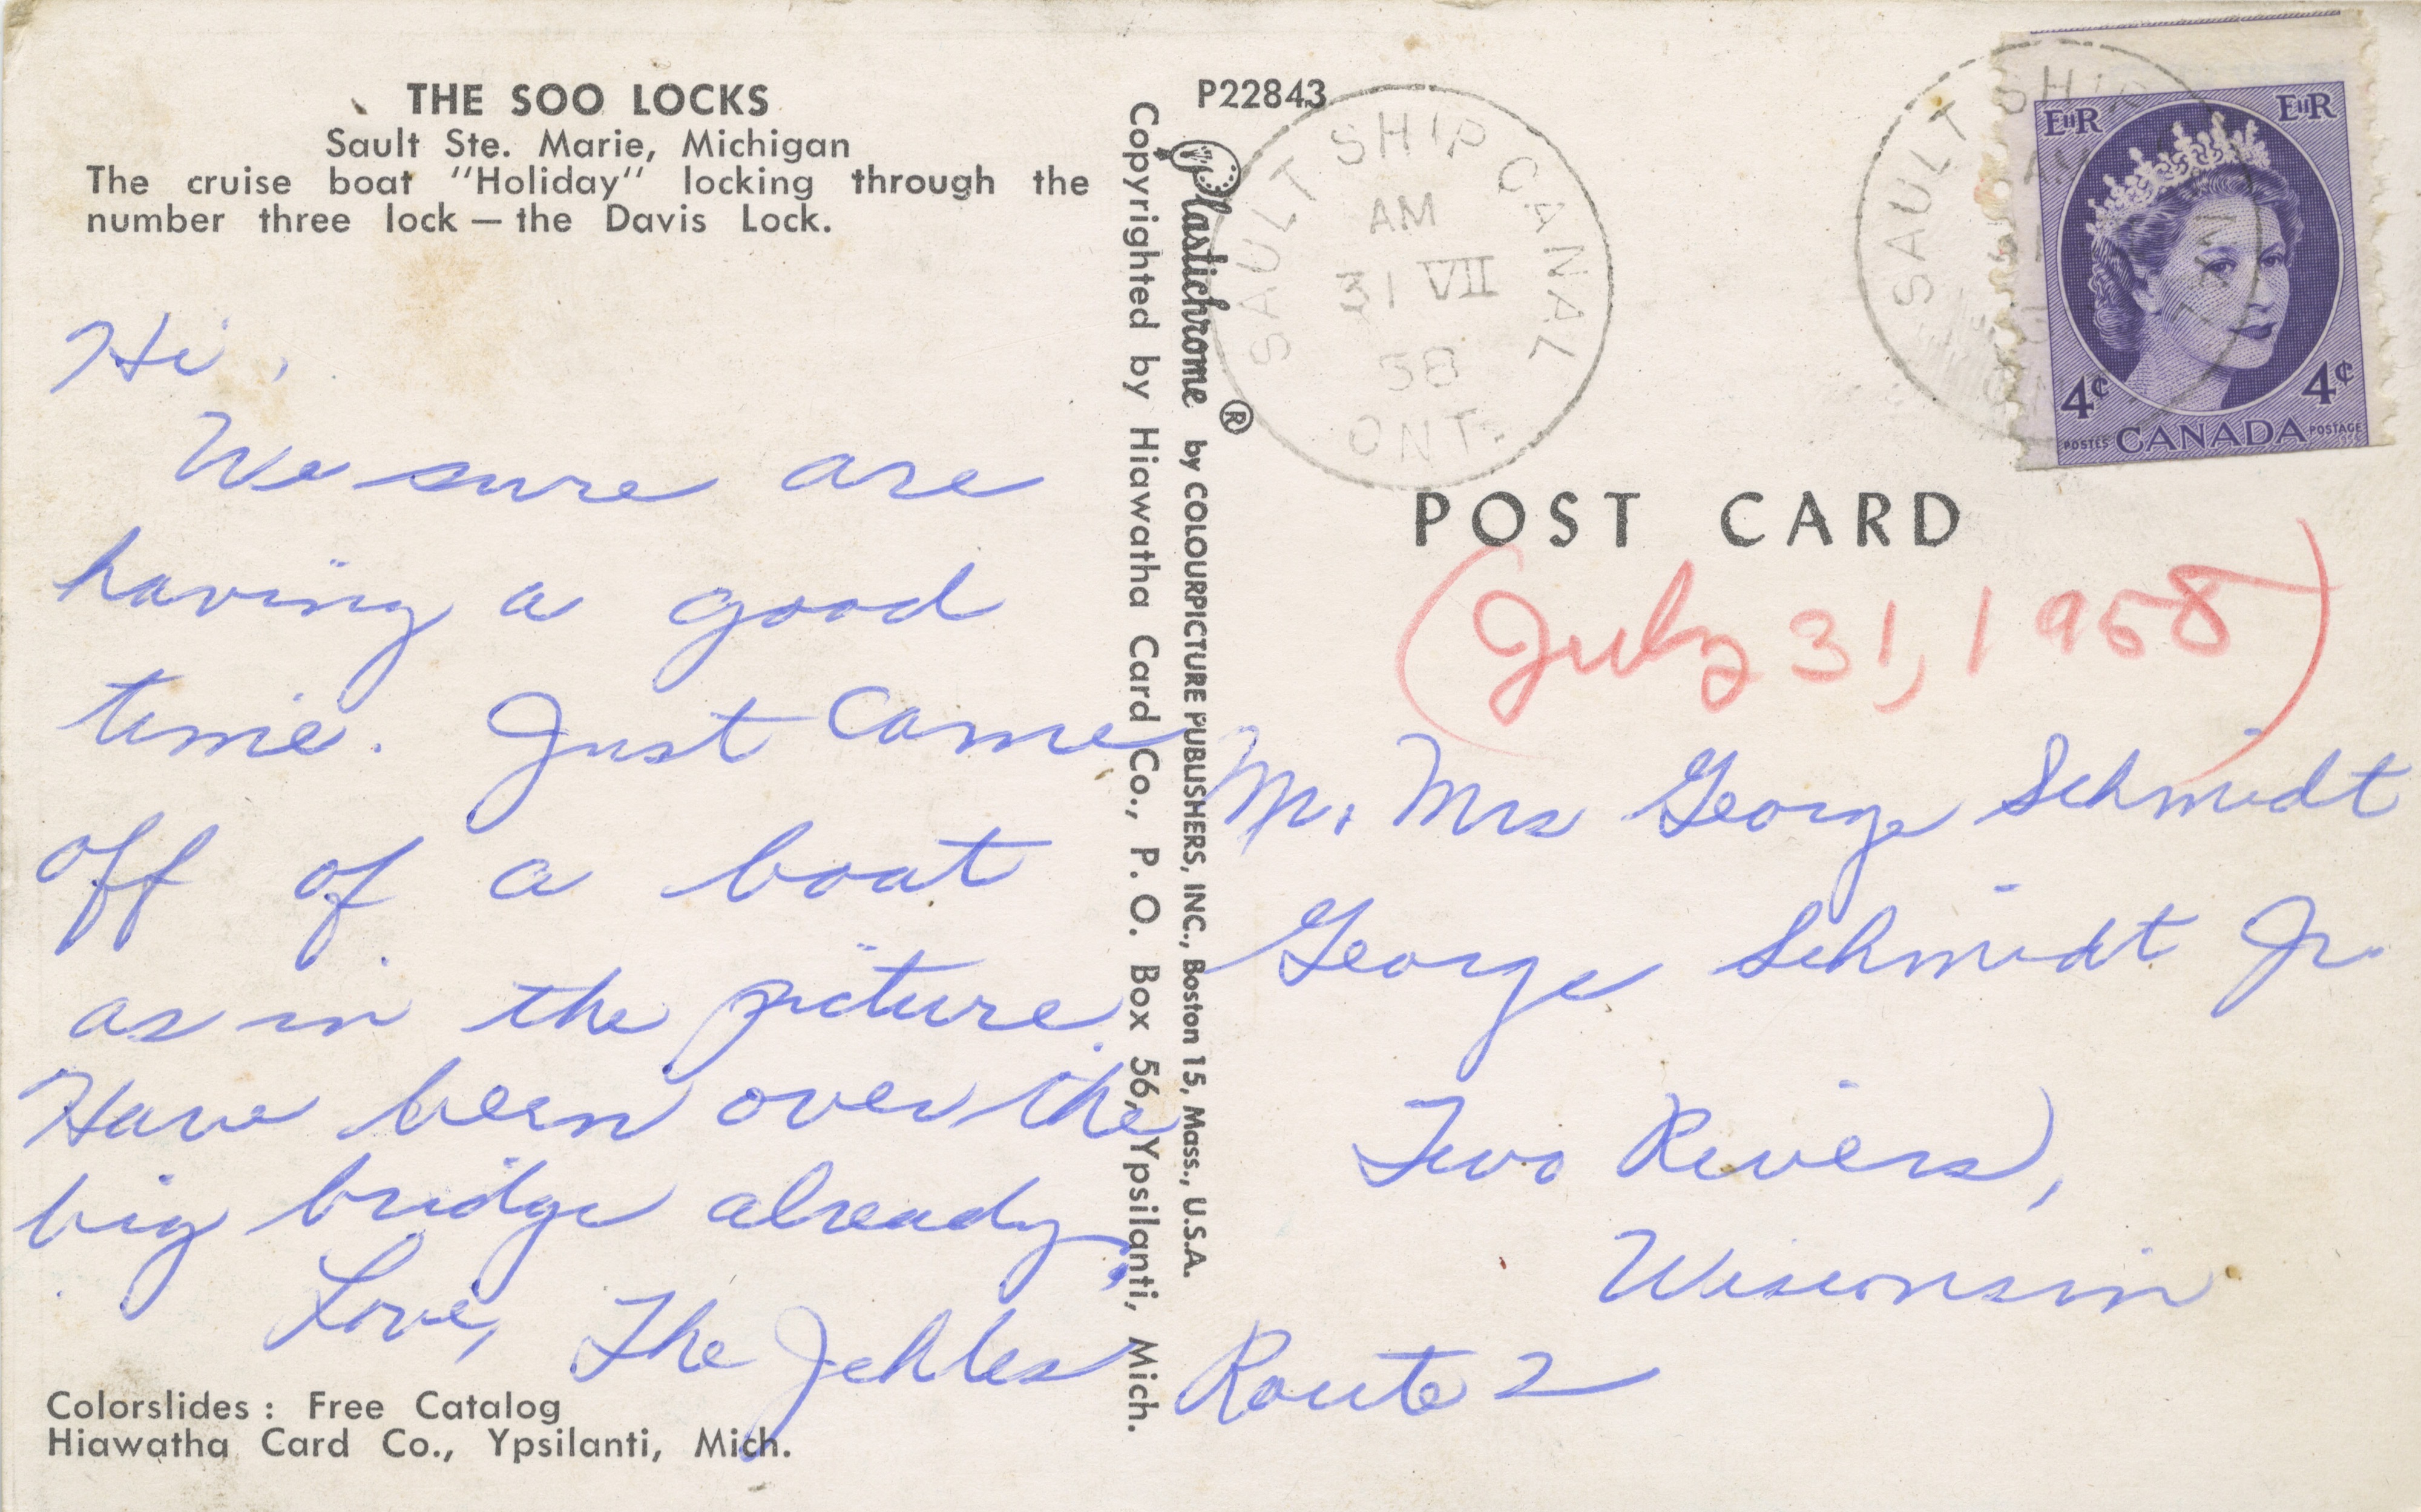 THE SOO LOCKS
Sault Ste. Marie, Michigan
The cruise boat "Holiday" locking through the
number three lock — the Davis Lock.
Hi,
We sure are
having a good
time. Just came
off of a boat
as in the picture.
Have been over the
big bridge already.
Love, The Jehles
Colorslides : Free Catalog
Hiawatha Card Co., Ypsilanti, Mich.
Copyrighted by Hiawatha Card Co., P. O. Box 56, Ypsilanti, Mich.
Plastichrome ® by COLOURPICTURE PUBLISHERS, INC., Boston 15, Mass., U.S.A.
P22843
SAULT SHIP CANAL
AM
31 VII
58
ONT.
SAULT SHIP CANAL
AM
EIIR EIIR
4¢ 4¢
POSTES CANADA POSTAGE
POST CARD
(July 31, 1958)
Mr. Mrs George Schmidt
George Schmidt Jr.
Two Rivers,
Wisconsin
Route 2